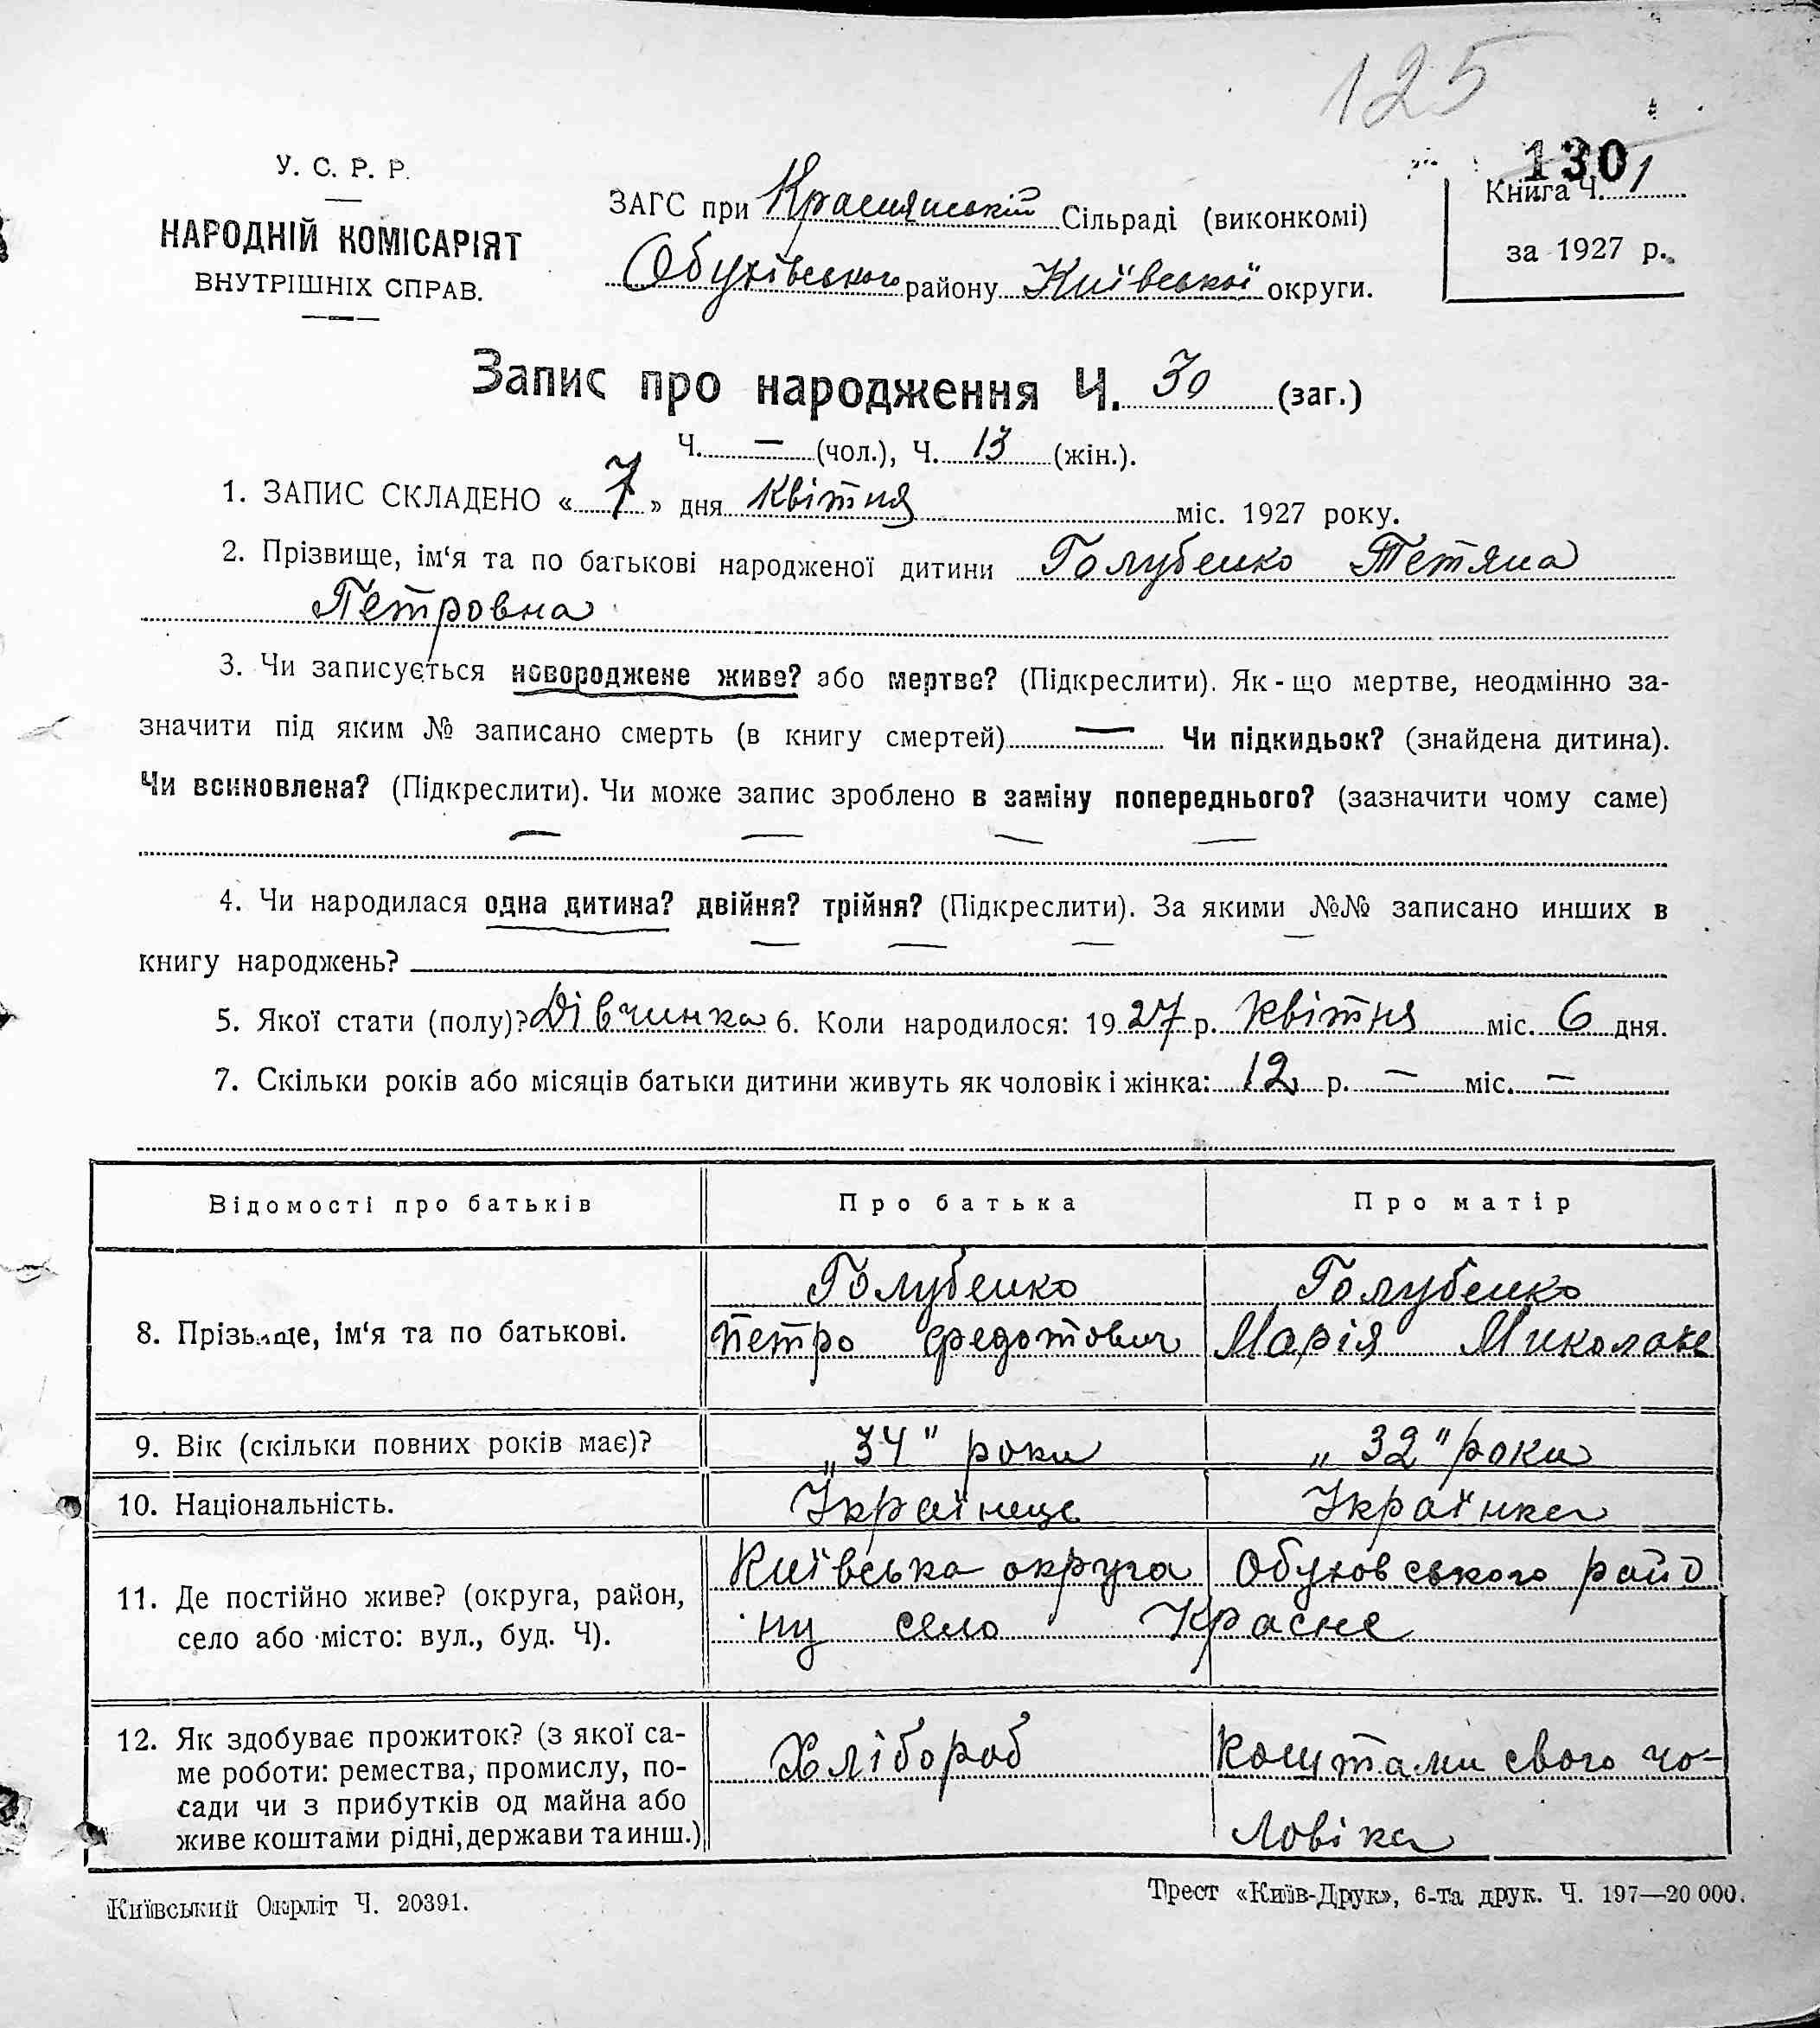 125
130
У. С. Р. Р.
НАРОДНІЙ КОМІСАРІЯТ
ВНУТРІШНІХ СПРАВ.
ЗАГС при Краснянській Сільраді (виконкомі)
Обухівського району Київської округи.
Книга Ч. 1
за 1927 р.
Запис про народження Ч. 30 (заг.)
Ч. — (чол.), Ч. 13 (жін.).
1. ЗАПИС СКЛАДЕНО « 7 » дня Квітня міс. 1927 року.
2. Прізвище, ім‘я та по батькові народженої дитини Голубенко Тетяна
Петровна
3. Чи записується новороджене живе? або мертве? (Підкреслити). Як-що мертве, неодмінно за-
значити під яким № записано смерть (в книгу смертей) — Чи підкидьок? (знайдена дитина).
Чи всиновлена? (Підкреслити). Чи може запис зроблено в заміну попереднього? (зазначити чому саме)
— — — —
4. Чи народилася одна дитина? двійня? трійня? (Підкреслити). За якими №№ записано инших в
книгу народжень?
5. Якої стати (полу)? Дівчинка 6. Коли народилося: 1927 р. Квітня міс. 6 дня.
7. Скільки років або місяців батьки дитини живуть як чоловік і жінка: 12 р. — міс. —
Відомості про батьків Про батька Про матір
8. Прізвище, ім‘я та по батькові.
Голубенко
Петро Федотович
Голубенко
Марія Миколаве
9. Вік (скільки повних років має)? „34" роки „32" роки
10. Національність. Українець Українка
11. Де постійно живе? (округа, район,
село або місто: вул., буд. Ч).
Київська округа Обуховського райо
ну село Красне
12. Як здобуває прожиток? (з якої са-
ме роботи: ремества, промислу, по-
сади чи з прибутків од майна або
живе коштами рідні, держави та инш.)
Хлібороб
Коштами свого чо-
ловіка
Київський Окрліт Ч. 20391.
Трест «Київ-Друк», 6-та друк. Ч. 197—20 000.